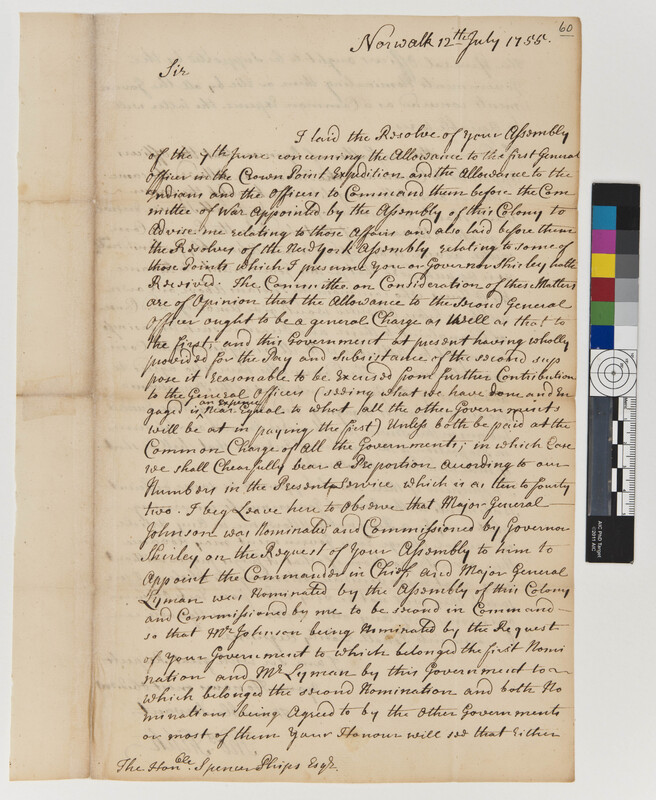 60
Norwalk 12th July 1755.
Sir
I laid the Resolve of Your Assembly
of the 7th June concerning the Allowance to the first General
Officer in the Crown Point Expedition and the Allowance to the
Indians and the Officers to Command them before the Com
mittee of War Appointed by the Assembly of this Colony to
Advise me relating to those Affairs and also laid before them
the Resolves of the New York Assembly relating to some of
those Points which I presume You or Governor Shirley hath
Received. The Committee on Consideration of these Matters
are of Opinion that the Allowance to the Second General
Officer ought to be a general Charge as Well as that to
the first, and this Government at present having wholly
provided for the Pay and Subsistance of the second sup
pose it reasonable to be Excused from further Contribution
to the General Officers (seeing what we have done and En
gaged is an Expence Near Equal to what all the other Governments
will be at in paying the first) Unless both be paid at the
Common Charge of All the Governments; in which Case
we shall Chearfully bear a Proportion According to our
Numbers in the Present Service which is as ten to fourty
two. I beg Leave here to Observe that Major General
Johnson was Nominated and Commissioned by Governor
Shirley on the Request of Your Assembly to him to
Appoint the Commander in Chief, and Major General
Lyman was Nominated by the Assembly of this Colony
and Commissioned by me to be second in Command
so that Mr Johnson being Nominated by the Request
of Your Government to which belonged the first Nomi
nation and Mr Lyman by this Government to
which belonged the second Nomination and both No
minations being Agreed to by the Other Governments
or most of them Your Honour will see that Either
The Honble. Spencer Phips Esqr.